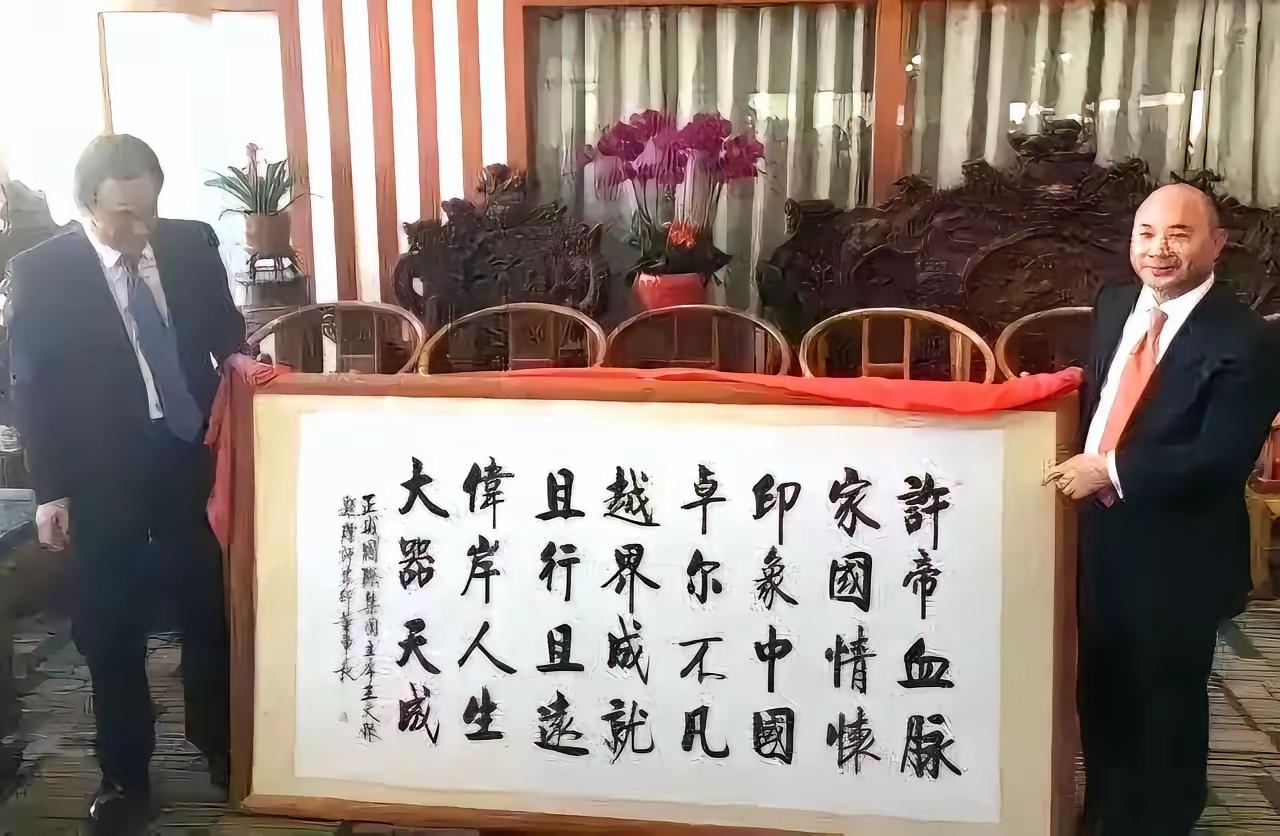 許帝血脉
家國情懷
印象中國
卓尔不凡
越界成就
且行且遠
偉岸人生
大器天成
國際集團主席
董事長